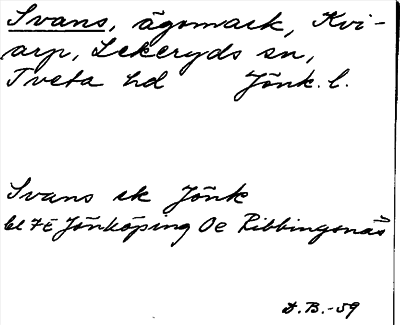 Svans, ägomark, Kvi-
arp, Lekeryds sn,
Tveta hd Jönk. l.
Svans ek Jönk
bl 7E Jönköping Oe Ribbingsnäs
D.B.-59